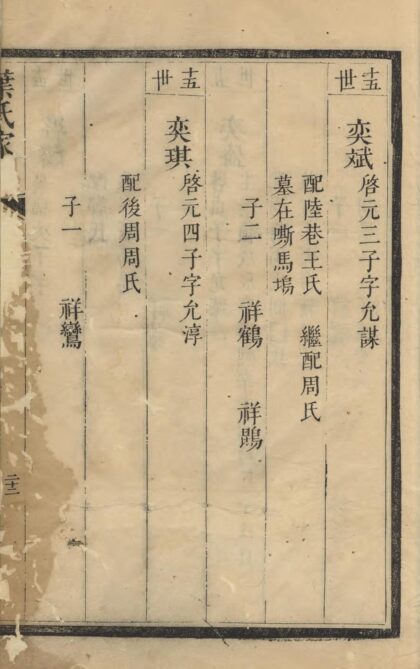 十五世
奕斌 啓元三子字允謀
配陸巷王氏 繼配周氏
墓在嘶馬塢
子二 祥鶴 祥鵾
十五世
奕琪 啓元四子字允淳
配後周周氏
子一 祥鸞
葉氏家
二十二